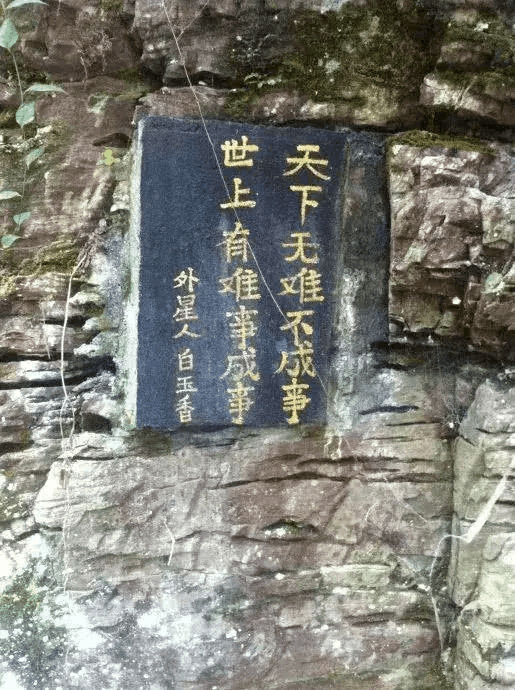 天下无难不成事
世上有难事成事
外星人白玉香